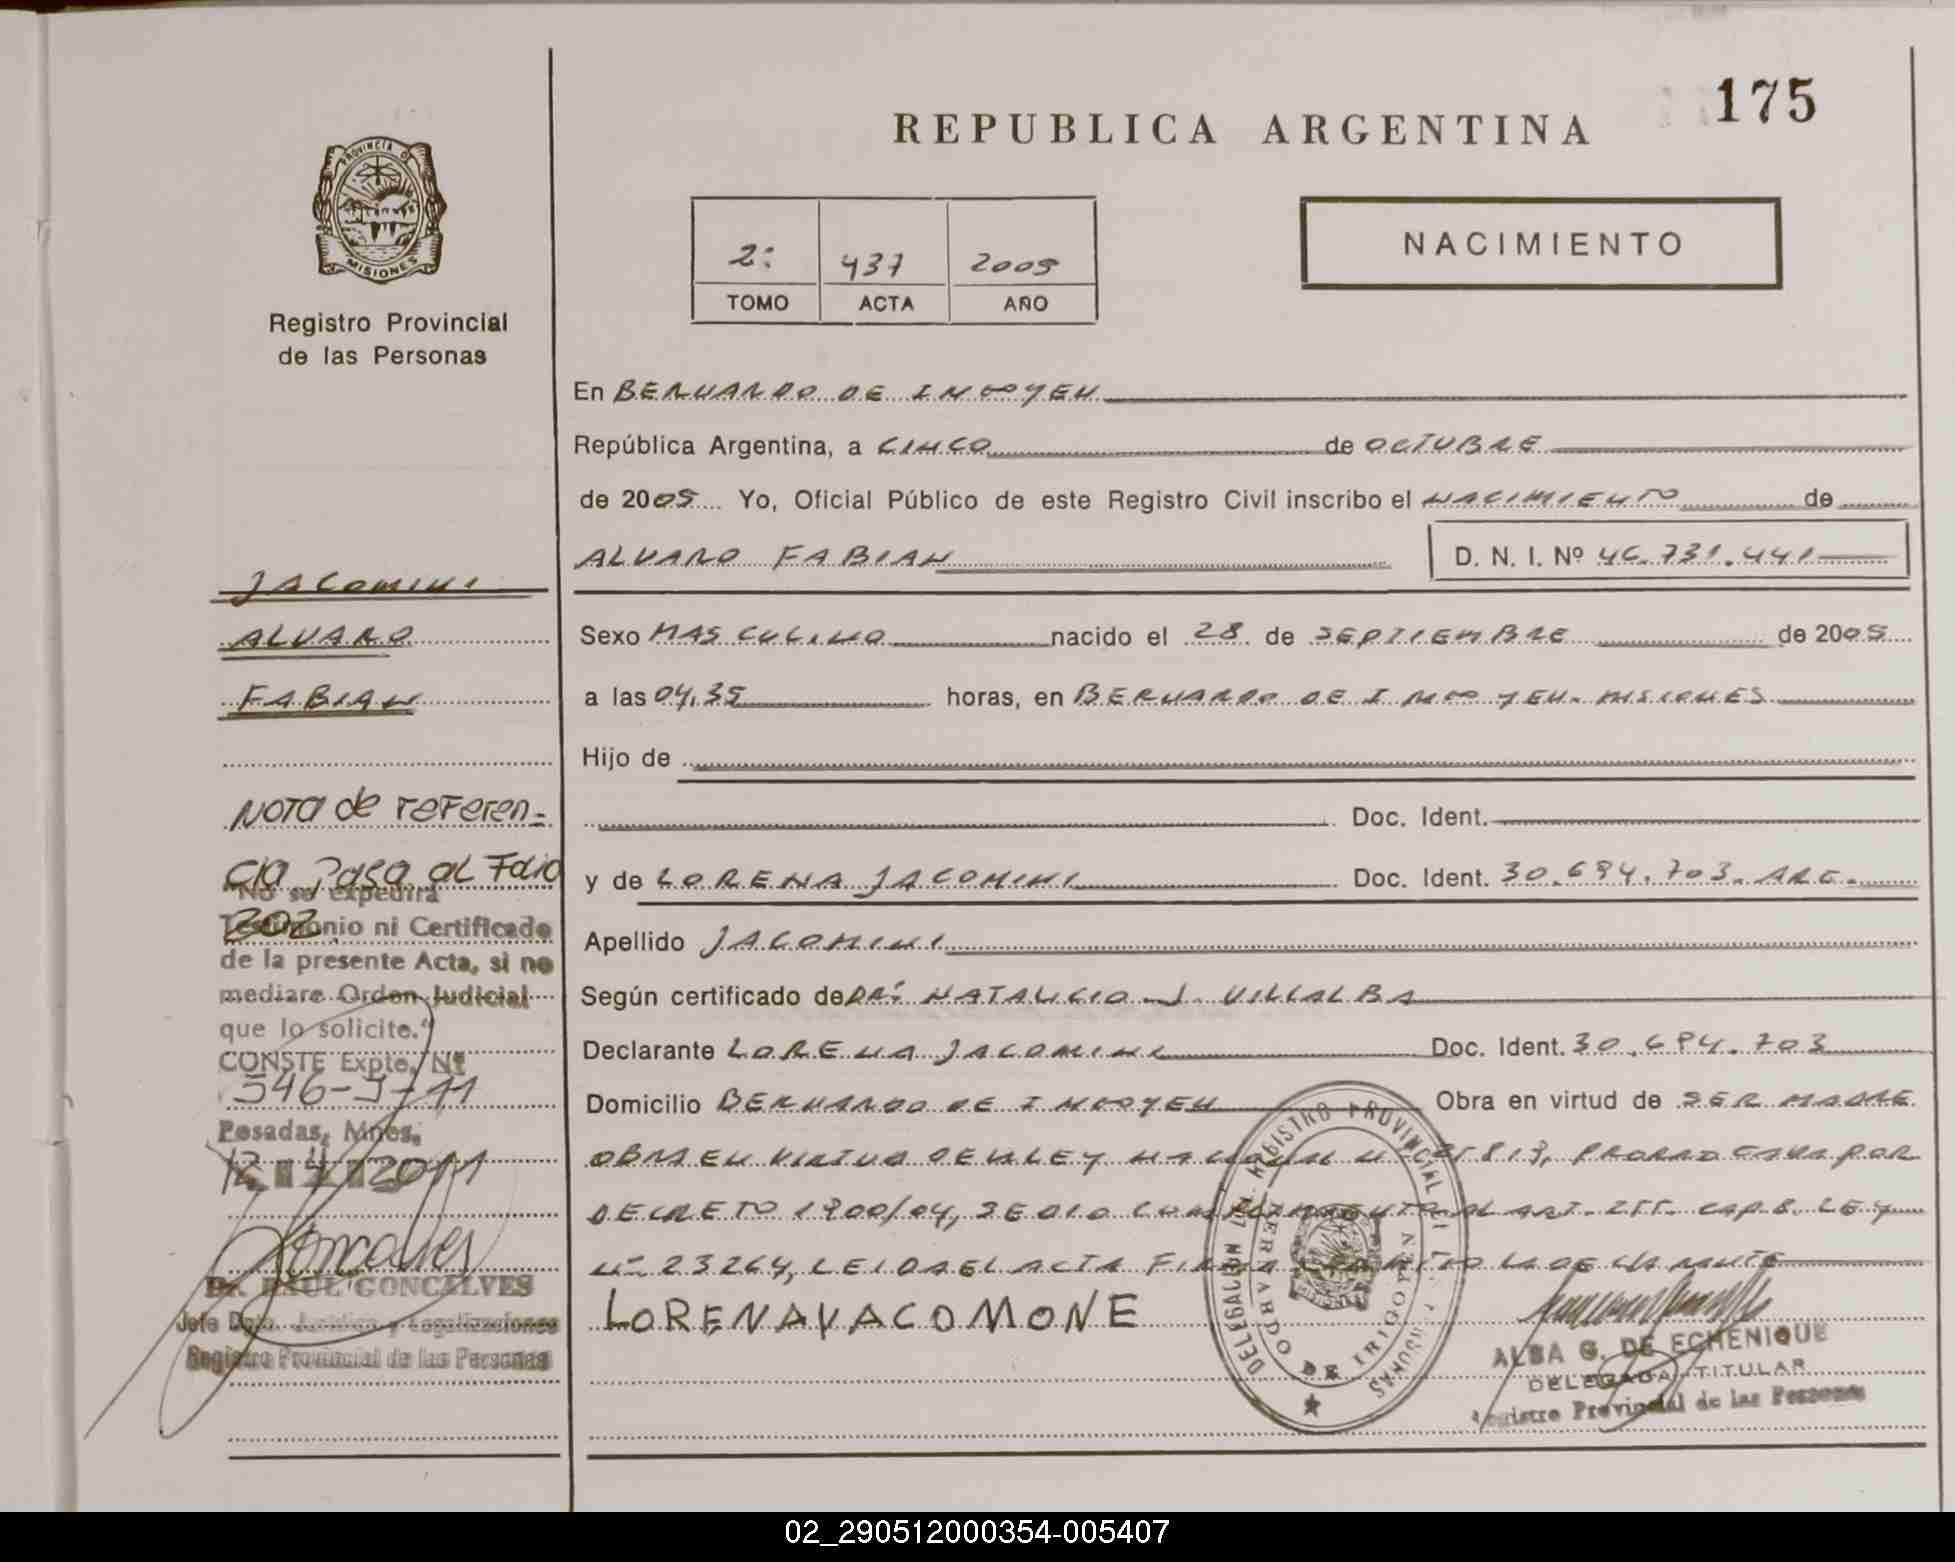 175
REPUBLICA ARGENTINA
PROVINCIA DE
MISIONES
Registro Provincial
de las Personas
2º 437 2005
TOMO ACTA AÑO
NACIMIENTO
En BERNARDO DE IRIGOYEN
República Argentina, a CINCO de OCTUBRE
de 2005 Yo, Oficial Público de este Registro Civil inscribo el NACIMIENTO de
ALVARO FABIAN D. N. I. Nº 46.731.441
Sexo MASCULINO nacido el 28 de SEPTIEMBRE de 2005
a las 04,35 horas, en BERNARDO DE IRIGOYEN. MISIONES
Hijo de
Doc. Ident.
y de LORENA JACOMINI Doc. Ident. 30.694.703. ARG.
Apellido JACOMINI
Según certificado de DR: NATALICIO J. VILLALBA
Declarante LORENA JACOMINI Doc. Ident. 30.694.703
Domicilio BERNARDO DE IRIGOYEN Obra en virtud de SER MADRE
OBRA EN VIRTUD DE LA LEY NACIONAL Nº 25813, PRORROGADA POR
DECRETO 1900/04, SE DIO CUMPLIMIENTO AL ART. 255. CAP. 8. LEY
Nº 23264, LEIDA EL ACTA FIRMA LA DECLARANTE
LORENAYACOMONE
REGISTRO PROVINCIAL DE LAS PERSONAS
DELEGACION
BERNARDO DE IRIGOYEN
ALBA G. DE ECHENIQUE
DELEGADA TITULAR
Registro Provincial de las Personas
JACOMINI
ALVARO
FABIAN
Nota de referen-
cia Pasa al Folio
202
"No se expedirá
Testimonio ni Certificado
de la presente Acta, si no
mediare Orden Judicial
que lo solicite."
CONSTE Expte, Nº
546-J-11
Posadas, Mnes,
12 4 2011
Goncalves
Dr. RAUL GONCALVES
Jefe Dpto. Jurídico y Legalizaciones
Registro Provincial de las Personas
02_290512000354-005407